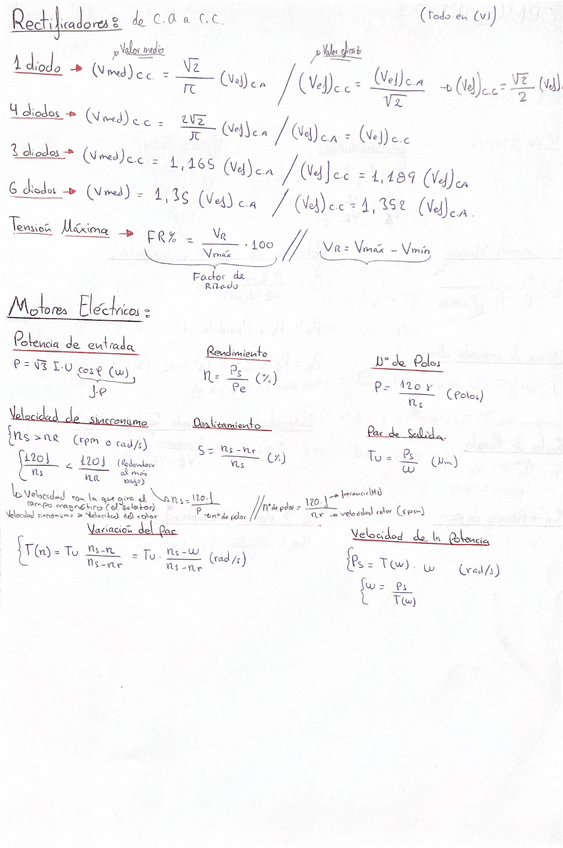 Rectificadores: de C.A a C.C. (todo en (V))
Valor medio Valor eficaz
1 diodo → (Vmed)c.c. = √2/π (Vef)c.A / (Vef)c.c = (Vef)c.A/√2 → (Vef)c.c = √2/2 (Vef)
4 diodos → (Vmed)c.c = 2√2/π (Vef)c.A / (Vef)c.A = (Vef)c.c
3 diodos → (Vmed)c.c = 1,165 (Vef)c.A / (Vef)c.c = 1,189 (Vef)CA
6 diodos → (Vmed) = 1,35 (Vef)c.A / (Vef)c.c = 1,352 (Vef)c.A.
Tensión Máxima → FR% = VR/Vmáx · 100 // VR = Vmáx - Vmín
Factor de
Rizado
Motores Eléctricos:
Potencia de entrada
P = √3 I·U cosφ (w)
f.P
Rendimiento
η = Ps/Pe (%)
Nº de Polos
P = 120 f/ns (polos)
Velocidad de sincronismo
{ns > nR (rpm o rad/s)
{120 f/ns < 120 f/nR (Redondear
al más
bajo)
↳ Velocidad con la que gira el
campo magnético (el estator)
Velocidad sincronismo > Velocidad del rotor
Deslizamiento
S = ns-nr/ns (%)
Par de Salida
Tu = Ps/ω (Nm)
ns = 120·f/P → nº de polos // nº de polos = 120·f/nr → frecuencia (Hz)
→ velocidad rotor (rpm)
Variación del Par
{T(n) = Tu ns-n/ns-nr = Tu · ns-ω/ns-nr (rad/s)
Velocidad de la Potencia
{Ps = T(ω) · ω (rad/s)
{ω = Ps/T(ω)